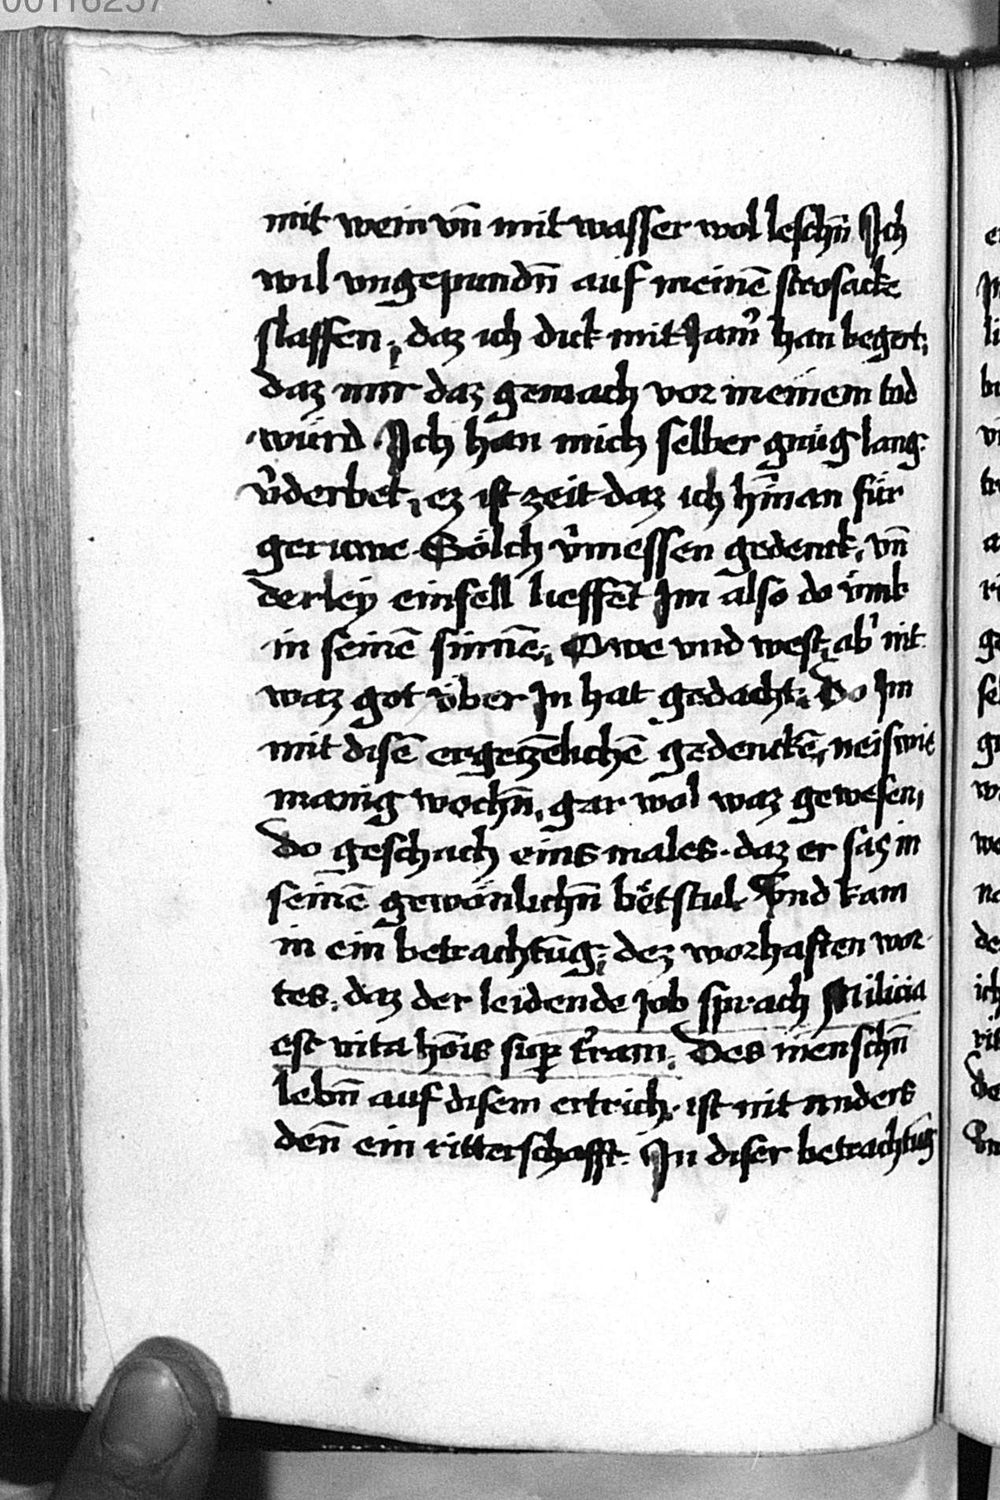 00116257
mit wein vn̄ mit wasser wol leschn̄ Ich
wil vngepundn̄ auf meinē strosacke
slaffen, daz ich dick mit Jam̾ han begert,
daz mir daz gemach vor meinem tod
würd Ich han mich selber gnüg lang
v̾derbet, ez ist zeit daz ich hīnan für
geruwe Sölch v̾messen gedenck, vn̄
derley einfell lieffēt Im also do v̈mb
in seinē sinnē, Owe vnd west ab̾ nit
waz got v̈ber In hat gedacht, Do Im
mit disē ergetzēlichē gedenckē, neiswie
manig wochn̄, gar wol waz gewesen,
do geschach eins males daz er sas in
seinē gewönlichn̄ bëtstul Vnd kam
in ein betrachtūg, dez worhaften wor
tes, daz der leidende Job sprach Milicia
est vita hōis suꝑ t̾ram, Des menschn̄
lebn̄ auf disem ertrich ist nit anders
denn̄ ein ritterschafft In diser betrachtūg